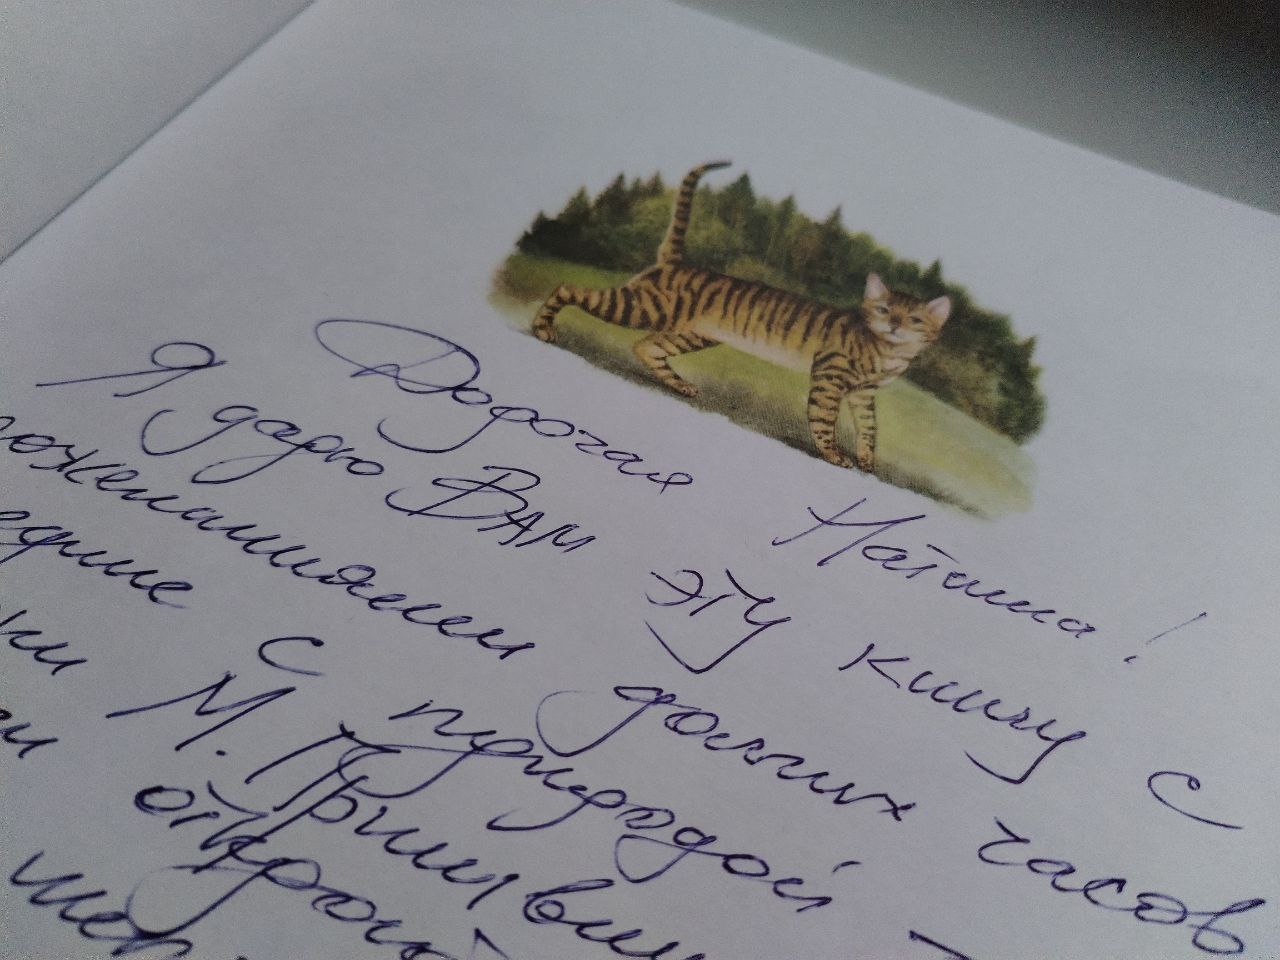 Дорогая Наташа!
Я дарю Вам эту книгу с
пожеланиями долгих часов
с природой
М. Пришвин
открой